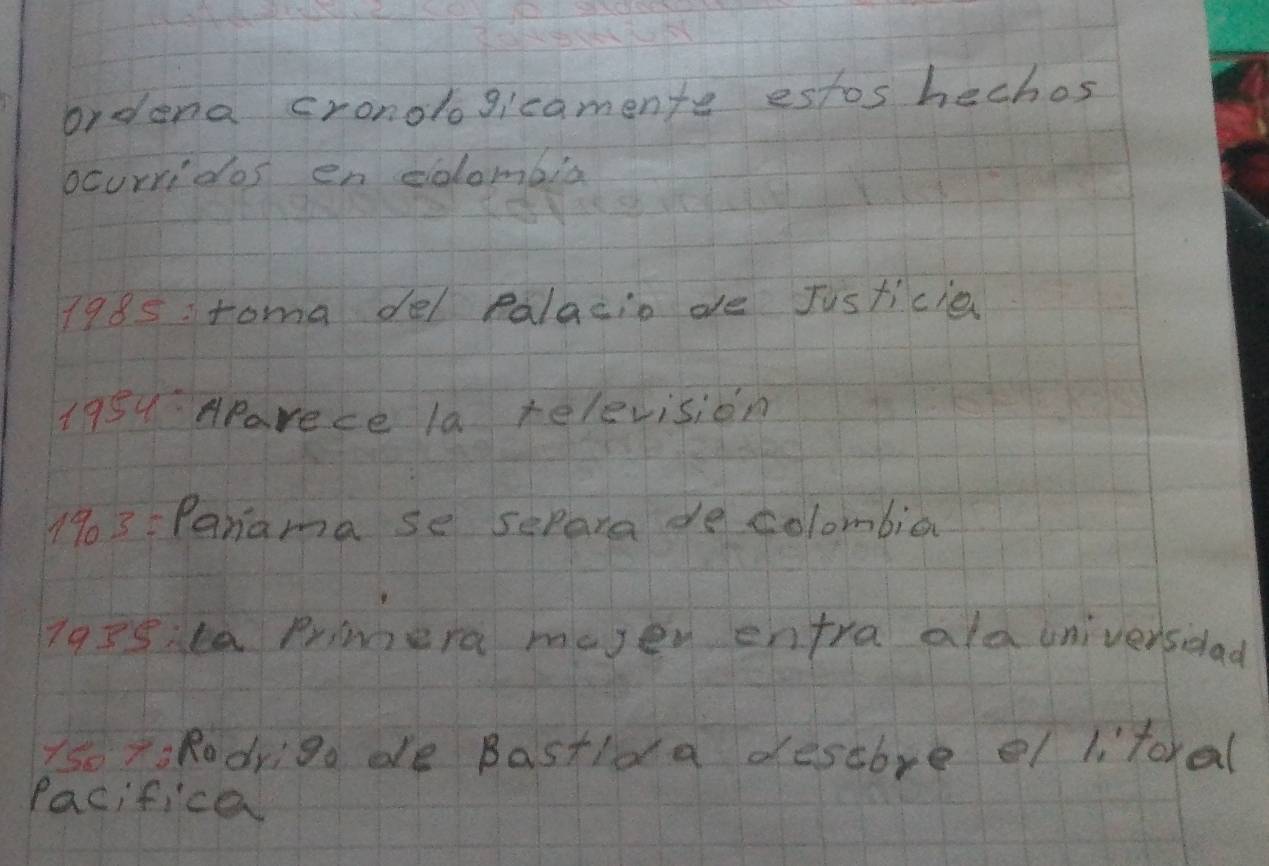 ordena cronologicamente estos hechos
ocurridos en colombia
1985: toma del Palacio de Justicia
1954: APArece la televisión
1903: Panama se separa de colombia
1935: La Primera mujer entra ala universidad
1501: Rodrigo de Bastida descbre el litoral
Pacifica